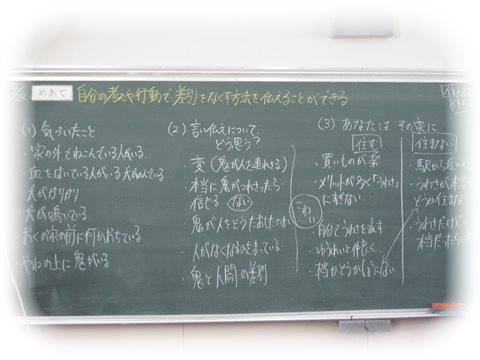 めあて 自分の考えや行動で差別をなくす方法を伝えることができる
(1) 気づいたこと
・家の外でねこんでいる人がいる
・血をはいている人がいる 犬が死んでいる
犬がガリガリ
・犬が鳴いている
・おくの家の前に何かおちている
・やねの上に鬼がいる
(2) 言い伝えについて、どう思う?
・変 (鬼が人を連れさる)
・本当に鬼がつれさったら信じる ない
・鬼が人をどうたおしたのか
・人がなくなるのきまっている
・鬼と人間の差別
こわい
(3) あなたは、その家に
住む
・買いものが楽
・メリットが多く「うわさ」にすぎない
・自分でうわさを流す
・ゆうれいと仲良く
住まない
・駅から近い
・うわさが本当
どうか
・うわさだけど
本当だったら